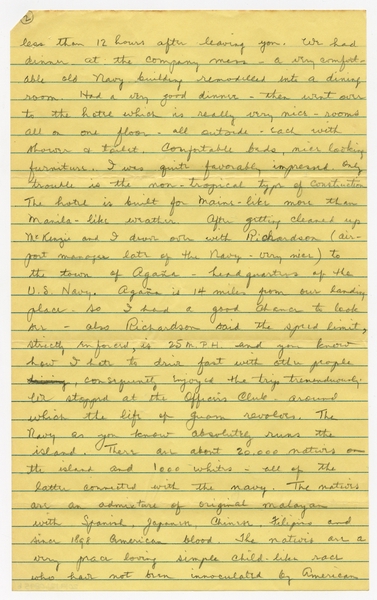 2
less than 12 hours after leaving you. We had
dinner at the company mess - a very comfort-
able old Navy building remodelled into a dining
room. Had a very good dinner - then went over
to the hotel which is really very nice - rooms
all on one floor - all outside - each with
shower & toilet. Comfortable beds, nice looking
furniture. I was quite favorably impressed. Only
trouble is the non-tropical type of construction
The hotel is built for Maine-like more than
Manila-like weather. After getting cleaned up
McKenzie and I drove over with Richardson (air-
port manager late of the Navy - very nice) to
the town of Agaña - headquarters of the
U.S. Navy. Agaña is 14 miles from our landing
place - so I had a good chance to look
see - also Richardson said the speed limit,
strictly enforced, is 25 M.P.H. and you know
how I hate to drive fast with other people
, consequently enjoyed the trip tremendously.
We stopped at the Officers Club - around
which the life of Guam revolves. The
Navy as you know absolutely runs the
island. There are about 20,000 natives on
the island and 1000 whites - all of the
latter connected with the navy. The natives
are an admixture of original malayan
with Spanish, Japanese, Chinese, Filipino and
since 1898 American blood. The natives are a
very peace loving simple child-like race
who have not been innoculated by American